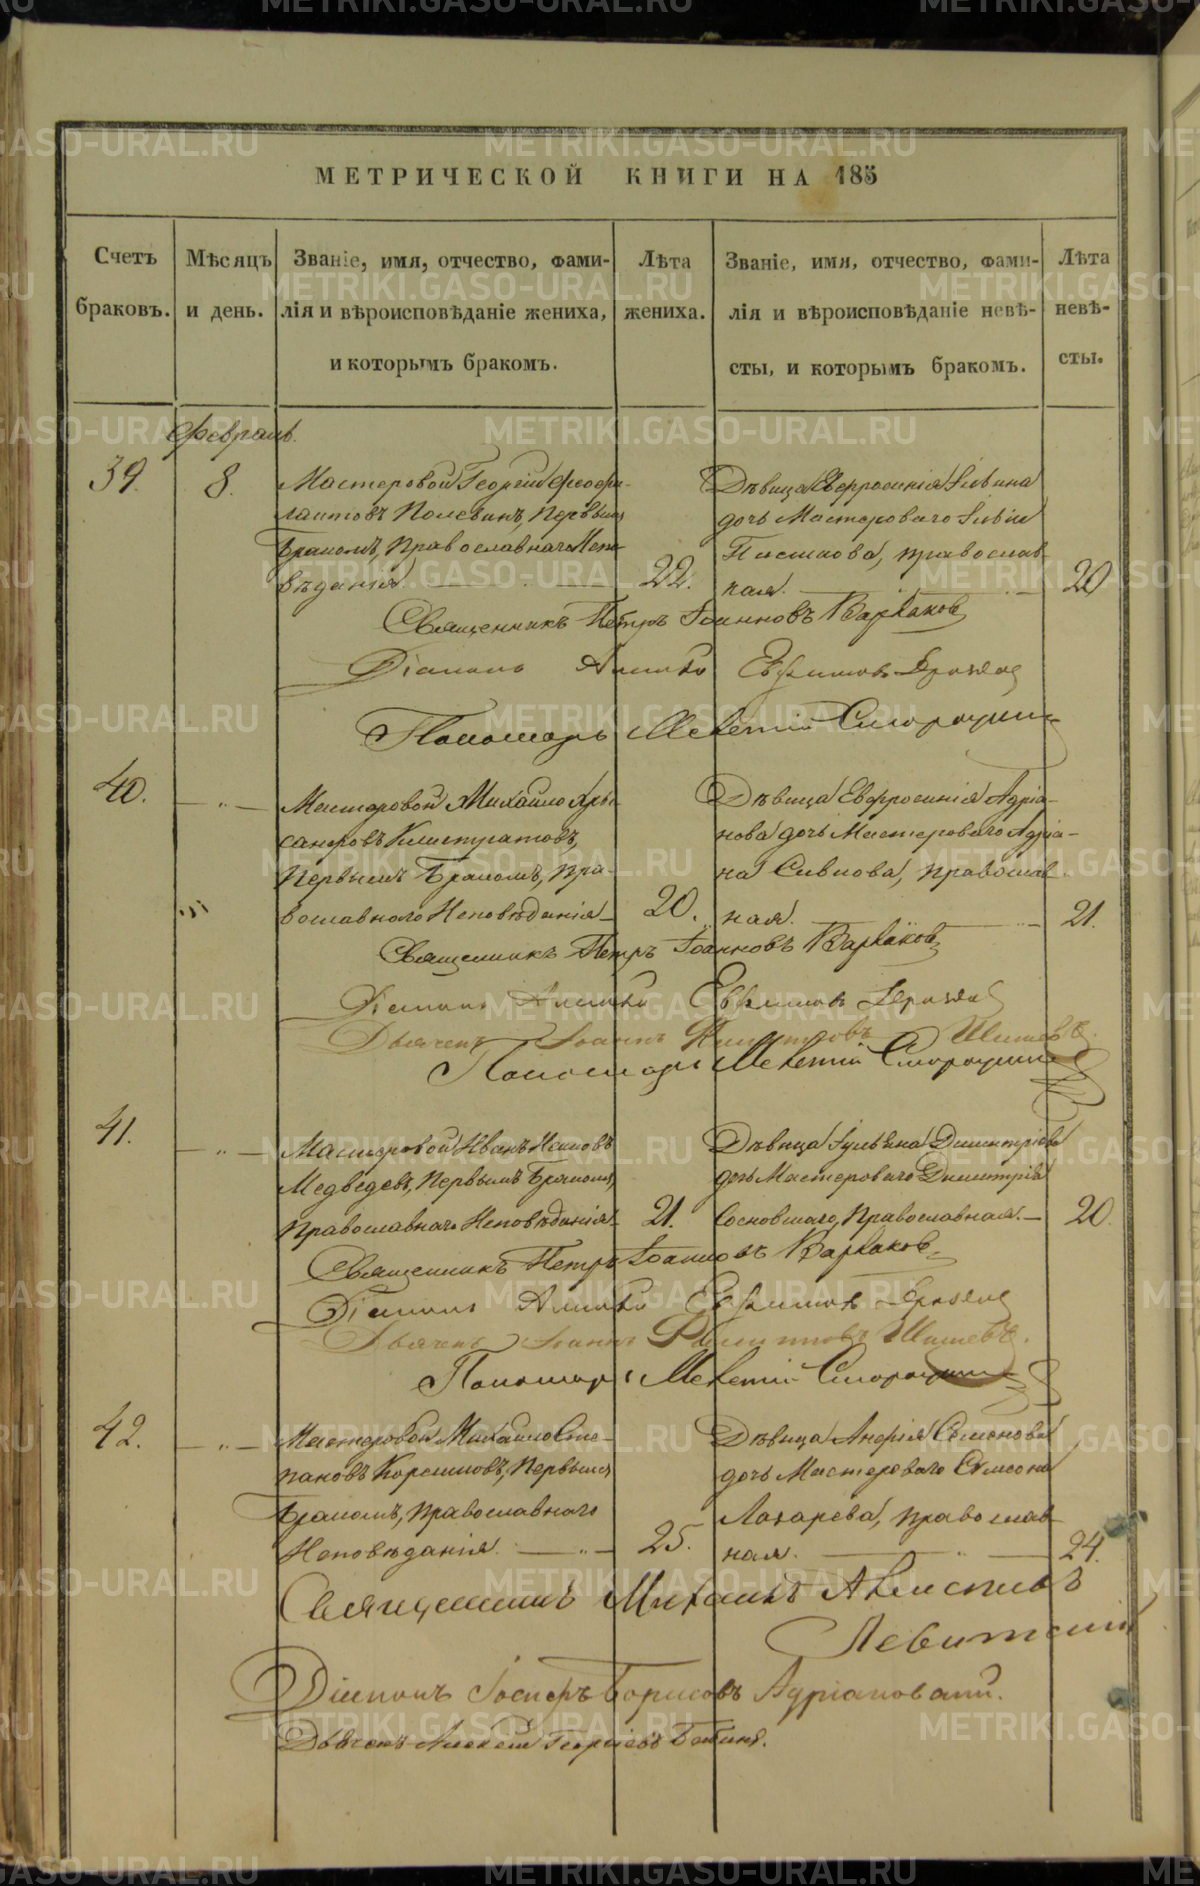 МЕТРИЧЕСКОЙ КНИГИ НА 185
Счетъ браковъ.
Мѣсяцъ и день.
Званіе, имя, отчество, фами-
лія и вѣроисповѣданіе жениха,
и которымъ бракомъ.
Лѣта
жениха.
Званіе, имя, отчество, фами-
лія и вѣроисповѣданіе невѣ-
сты, и которымъ бракомъ.
Лѣта
невѣ-
сты.
Февраль.
39. 8.
Мастеровой Георгій Феофи-
лактовъ Полевинъ, Первымъ
Бракомъ, Православнаго Испо-
вѣданія. 22.
Дѣвица Евфросинія
дочь Мастероваго
православ-
ная. 20
Священникъ Петръ Іоанновъ Варваковъ
Діаконъ Ефимовъ
Пономарь Смородин
40. — „ —
Мастеровой Михайло Хри-
санфовъ Калистратовъ,
Первымъ Бракомъ, Пра-
вославнаго Исповѣданія 20.
Дѣвица Евфросинія Адріа-
нова дочь Мастероваго Адріа-
на Сивкова, православ-
ная. 21.
Священникъ Петръ Іоанновъ Варваковъ
Діаконъ Ефимовъ
Дьячекъ Іоаннъ Шишевъ.
Пономарь Смородин
41. — „ —
Мастеровой Иванъ
Медведевъ, Первымъ Бракомъ,
Православнаго Исповѣданія 21.
Дѣвица Іульяна Димитріева
дочь Мастероваго Димитрія
Сосновскаго, Православная. — 20.
Священникъ Петръ Іоанновъ Варваковъ
Діаконъ Ефимовъ
Дьячекъ Іоаннъ Шишевъ.
Пономарь Смородин
42. — „ —
Мастеровой Михайло Сте-
пановъ Первымъ
Бракомъ, православнаго
Исповѣданія. — „ — 25.
Дѣвица Семенова
дочь Мастероваго Симеона
Лазарева, православ-
ная. 24.
Священникъ Михаилъ
Левитскій
Діаконъ Іосифъ Борисовъ Адріановскій.
Дьячекъ Алексѣй Георгіевъ Бабинъ.
METRIKI.GASO-URAL.RU